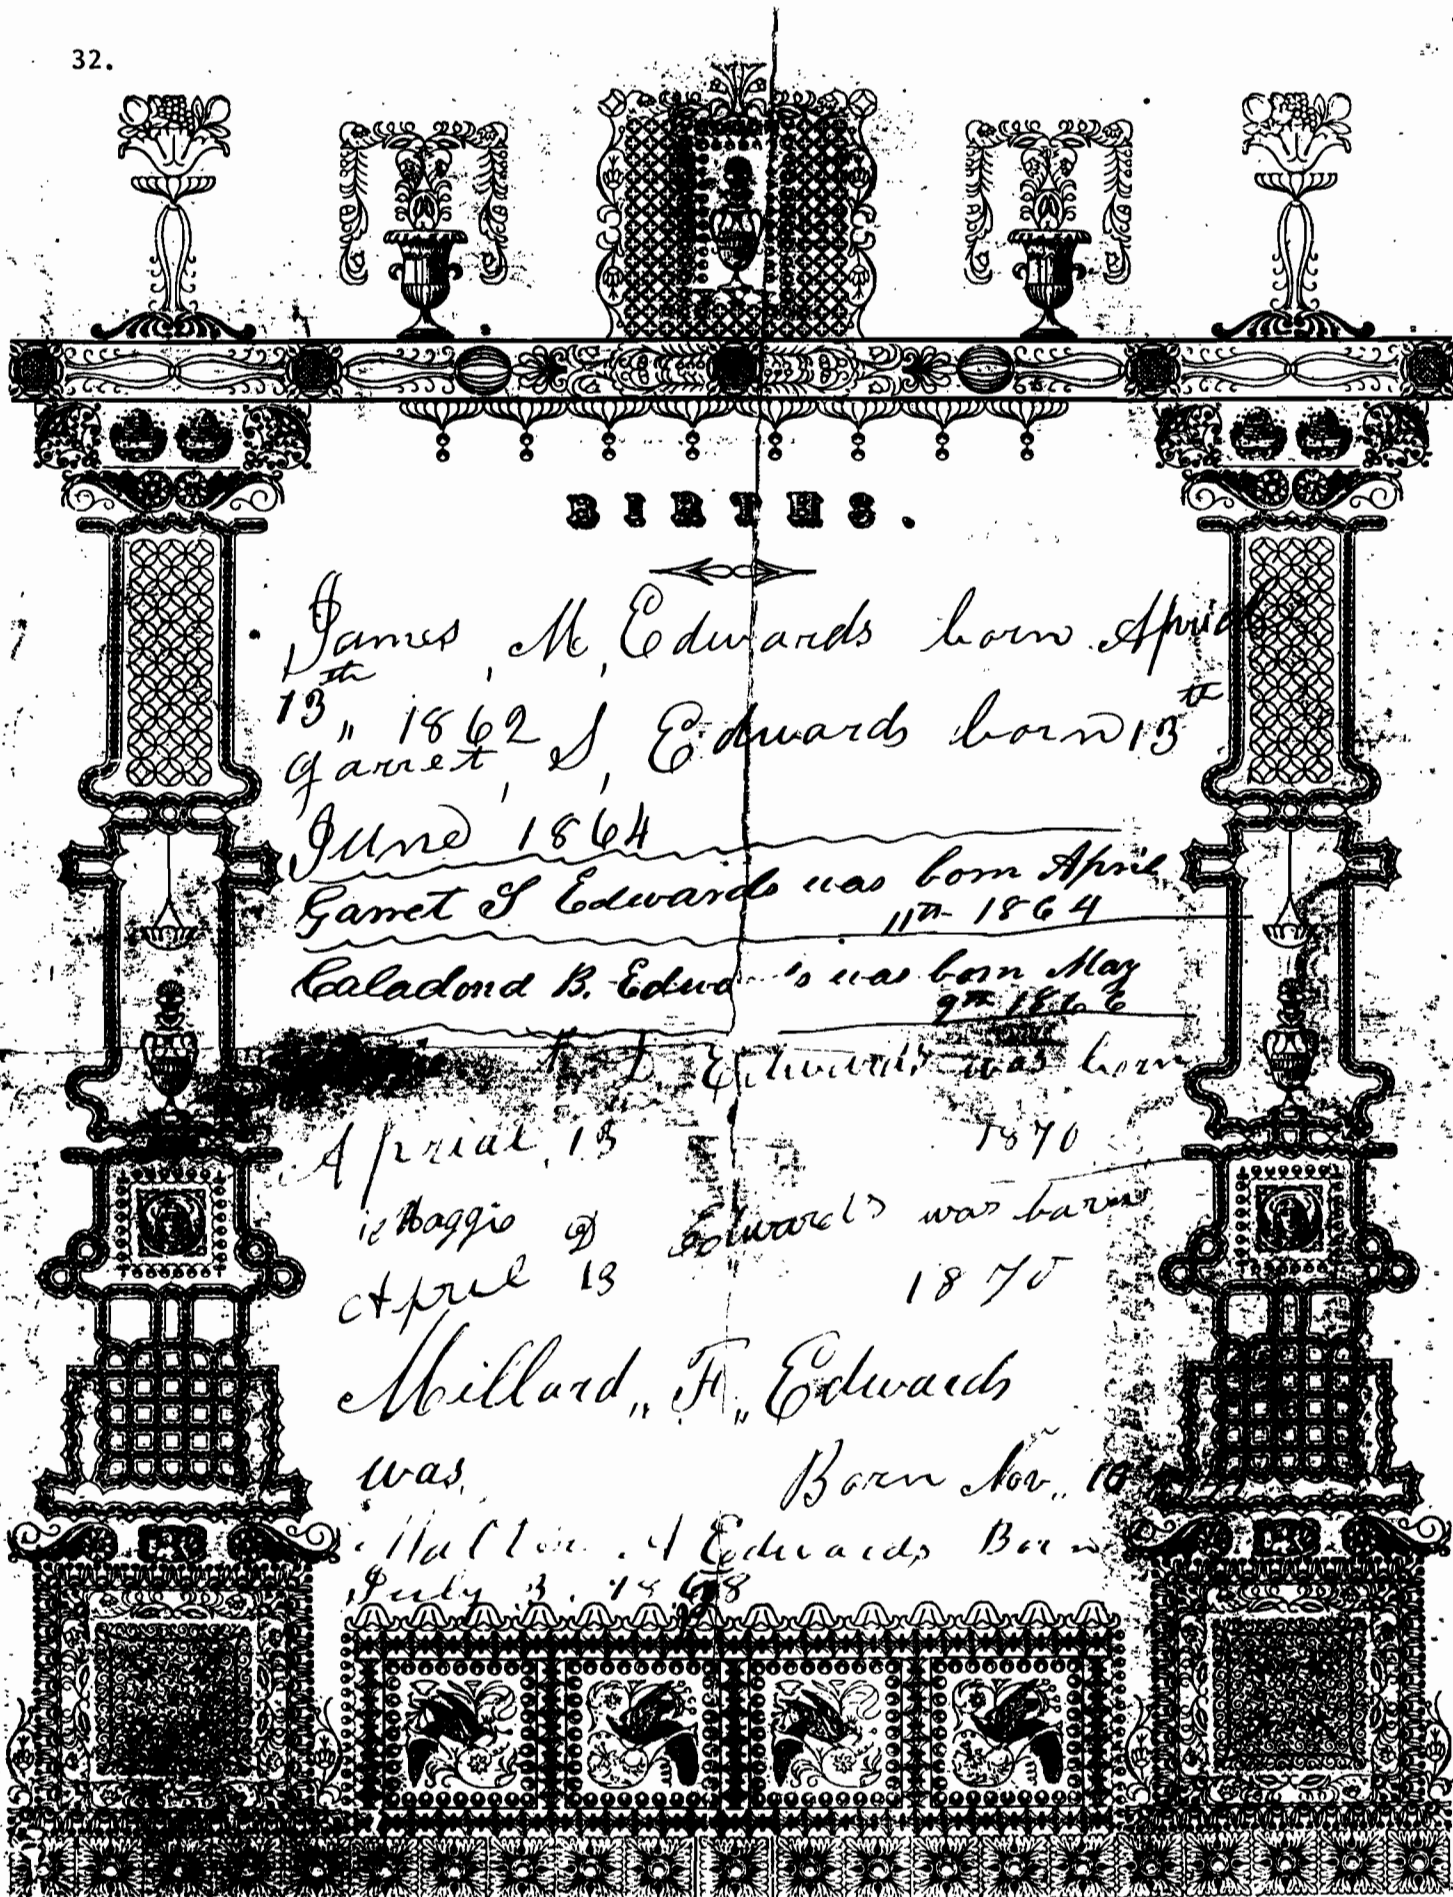 32.
BIRTHS.
James, M, Edwards born Aprial
13th „ 1862
Garret, S, Edwards born 13th
June 1864
Garret S Edwards was born April
11th 1864
Caladond B. Edwa 's was born May
9th 1866
L Edwards was born
Aprial, 13 1870
Maggie D Edwards was born
April 13 1870
Millard „ F „ Edwards
was Born Nov. 10
Edwards Born
July 3. 18